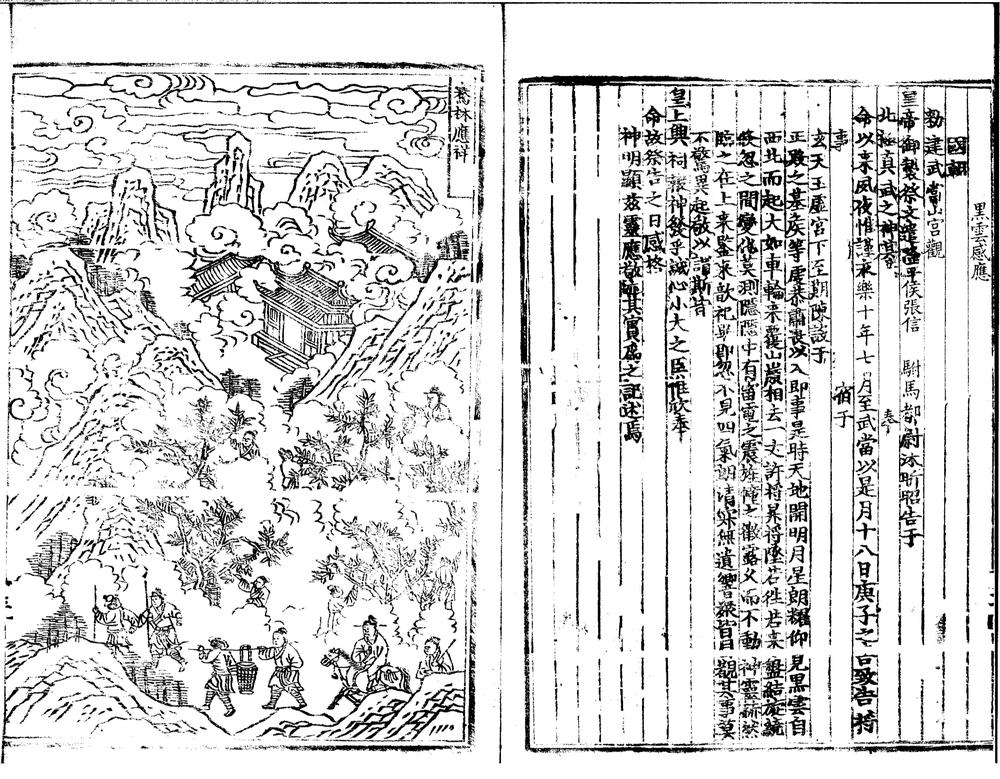 黑雲感應
國朝
勑建武當山宮觀
皇帝御製祭文遣隆平侯張信 駙馬都尉沐昕昭告于
北極真武之神其畧
奉
命以來夙夜惟謹永樂十年七月至武當以是月十八日庚子之吉致告將
事 宿于
玄天玉虛宮下至期陳設于
正殿之基矦等虔恭肅畏以入即事是時天地開明月星朗耀仰見黑雲自
西北而起大如車輪来覆山巖相去一丈許將昇將墜若徃若来盤結旋繞
倐忽之間變化莫測隱隱中有雷電之震旌幢之徹露久而不動神靈赫然
臨之在上来鑒来歆祀畢即忽不見四氣朗清寂無遺響衆皆目覩其事莫
不驚異起敬以謂斯皆
皇上興祠報神發乎誠心小大之臣惟欣奉
命故祭告之日感格
神明顯玆靈應敬跡其實爲之記述焉
騫林應祥